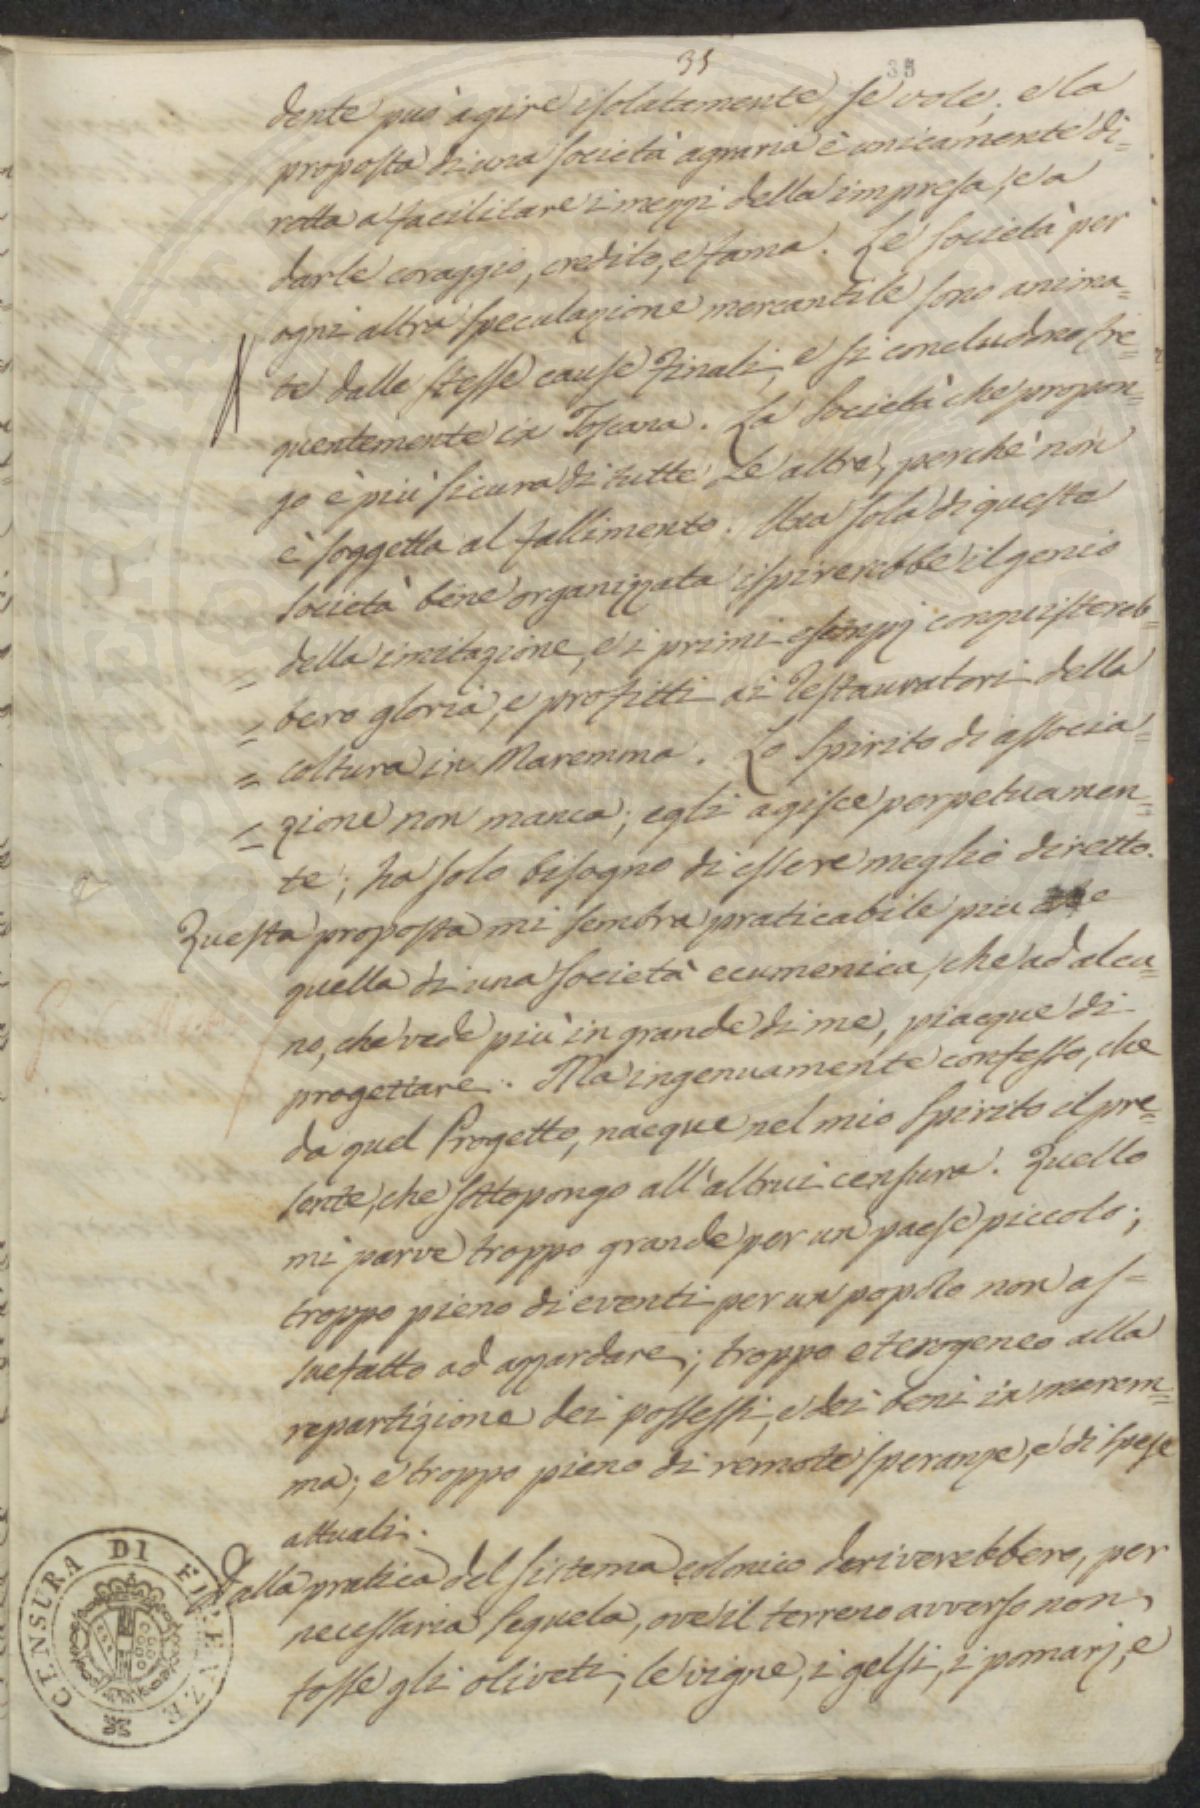 35
35
dente può agire isolatamente, se vole; e la
proposta di una società agraria è unicamente di=
retta a facilitare i mezzi della impresa, e a
darle coraggio, credito, e fama. Le società per
ogni altra speculazione mercantile sono anima=
te dalle stesse cause finali, e si concludono fre=
quentemente in Toscana. La Società che propon=
go è più sicura di tutte le altre, perchè non
è soggetta al fallimento. Una sola di queste
società bene organizzata ispirerebbe il genio
della imitazione, e i primi esempj conquistereb=
bero gloria, e profitti ai restauratori della
coltura in Maremma. Lo Spirito di associa=
zione non manca; egli agisce perpetuamen=
te; ha solo bisogno di essere meglio diretto.
Questa proposta mi sembra praticabile più che
quella di una Società ecumenica, che ad alcu=
no, che vede più in grande di me, piacque di
progettare. Ma ingenuamente confesso, che
da quel Progetto, nacque nel mio Spirito il pre=
sente, che sottopongo all'altrui censura. Quello
mi parve troppo grande per un paese piccolo;
troppo pieno di eventi per un popolo non as=
suefatto ad azzardare; troppo eterogeneo alla
repartizione dei possessi, e dei beni in marem=
ma; e troppo pieno di remote speranze, e di spese
attuali.
Dalla pratica del sistema colonico deriverebbero, per
necessaria sequela, ove il terreno avverso non
fosse gli oliveti, le vigne, i gelsi, i pomarj, e
CENSURA DI FIRENZE